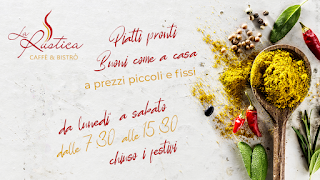 La
Rustica
CAFFÈ & BISTRÒ
Piatti pronti
Buoni come a casa
a prezzi piccoli e fissi
da lunedì a sabato
dalle 7.30 alle 15.30
chiuso i festivi